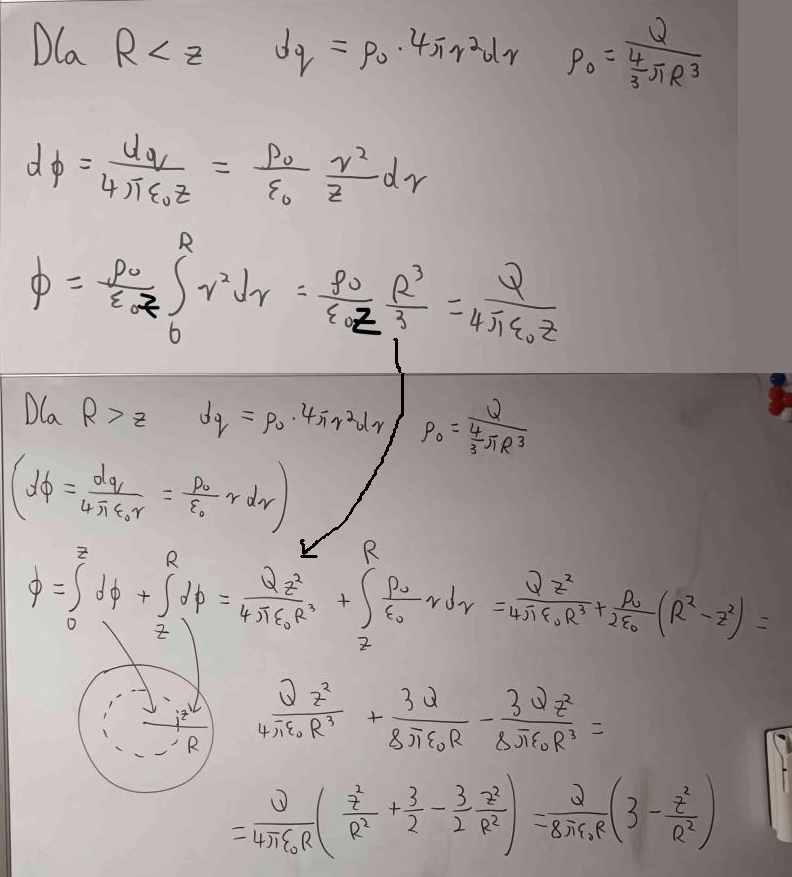 Dla R < z dq = ρ₀ · 4πr²dr ρ₀ = Q / (4/3 πR³)
dϕ = dq / (4πε₀z) = ρ₀/ε₀ r²/z dr
ϕ = ρ₀/(ε₀z) ∫₀ᴿ r²dr = ρ₀/(ε₀z) R³/3 = Q/(4πε₀z)
Dla R > z dq = ρ₀ · 4πr²dr ρ₀ = Q / (4/3 πR³)
(dϕ = dq/(4πε₀r) = ρ₀/ε₀ r dr)
ϕ = ∫₀ᶻ dϕ + ∫_z^R dϕ = Qz²/(4πε₀R³) + ∫_z^R ρ₀/ε₀ r dr = Qz²/(4πε₀R³) + ρ₀/(2ε₀) (R² − z²) =
z
R
Qz²/(4πε₀R³) + 3Q/(8πε₀R) − 3Qz²/(8πε₀R³) =
= Q/(4πε₀R) (z²/R² + 3/2 − 3/2 z²/R²) = Q/(8πε₀R) (3 − z²/R²)